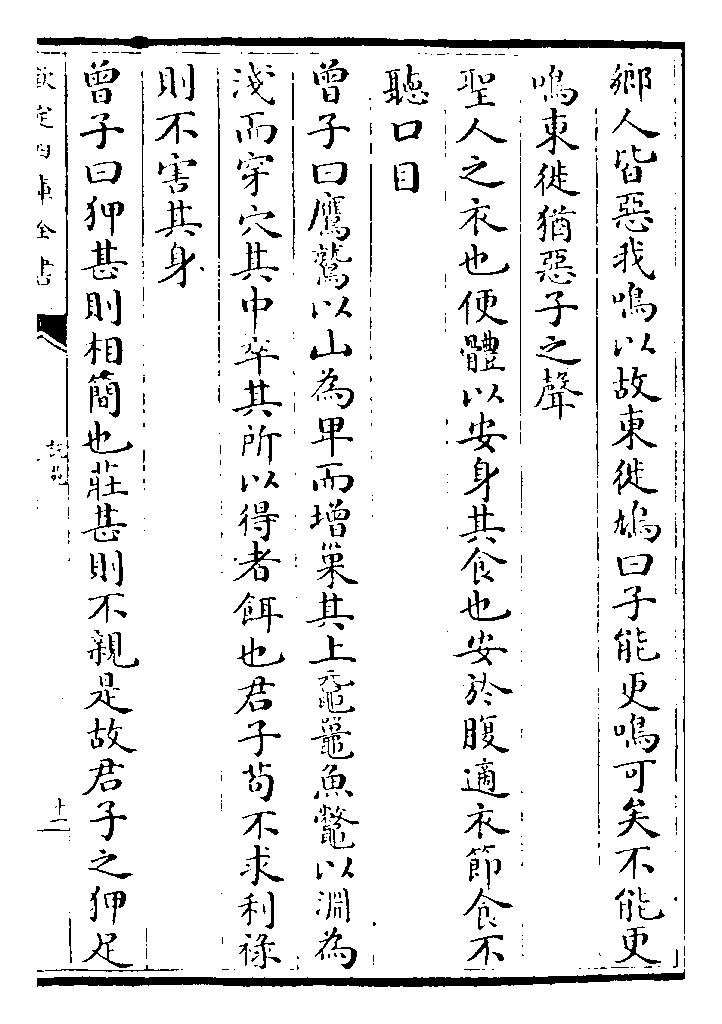 鄉人皆惡我鳴以故東徙鳩曰子能更鳴可矣不能更
鳴東徙猶惡子之聲
聖人之衣也便體以安身其食也安於腹適衣節食不
聽口目
曾子曰鷹鷲以山為卑而增巢其上黿鼉魚鼈以淵為
淺而穿穴其中卒其所以得者餌也君子苟不求利祿
則不害其身
曾子曰狎甚則相簡也莊甚則不親是故君子之狎足
欽定四庫全書
說苑
十二